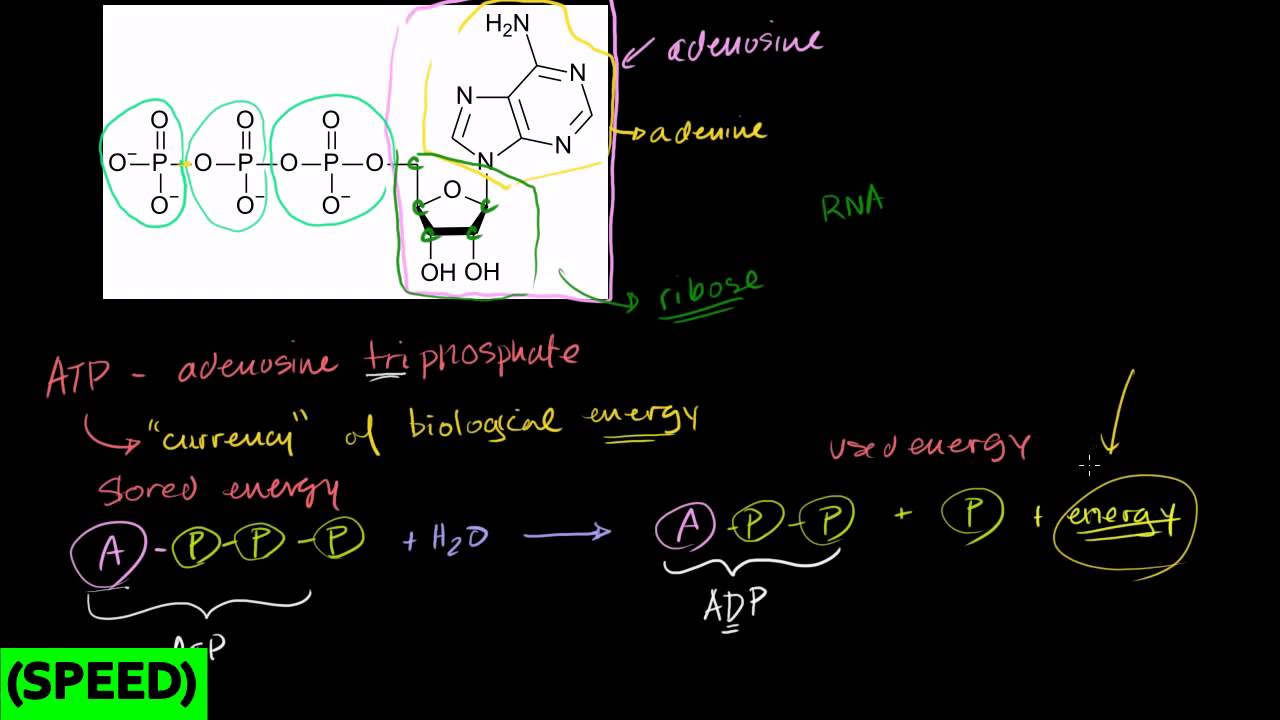 H₂N
adenosine
N N
adenine
N N
O O O
O⁻ P O P O P O C N
O⁻ O⁻ O⁻
O
C C
C C
RNA
OH OH
ribose
ATP - adenosine triphosphate
"currency" of biological energy
used energy
stored energy
A - P - P - P + H₂O → A - P - P + P + energy
ADP
(SPEED)